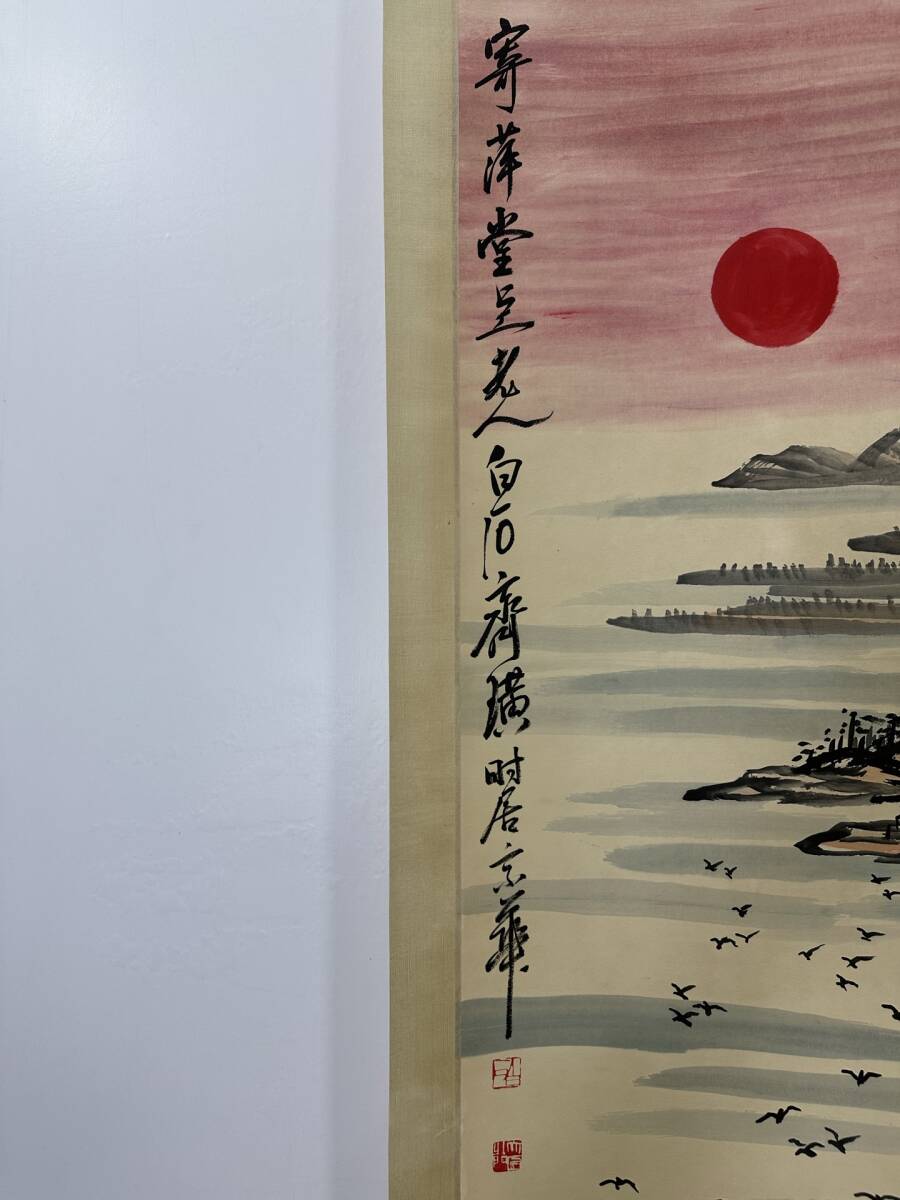 寄萍堂上老人白石齊璜时居京華